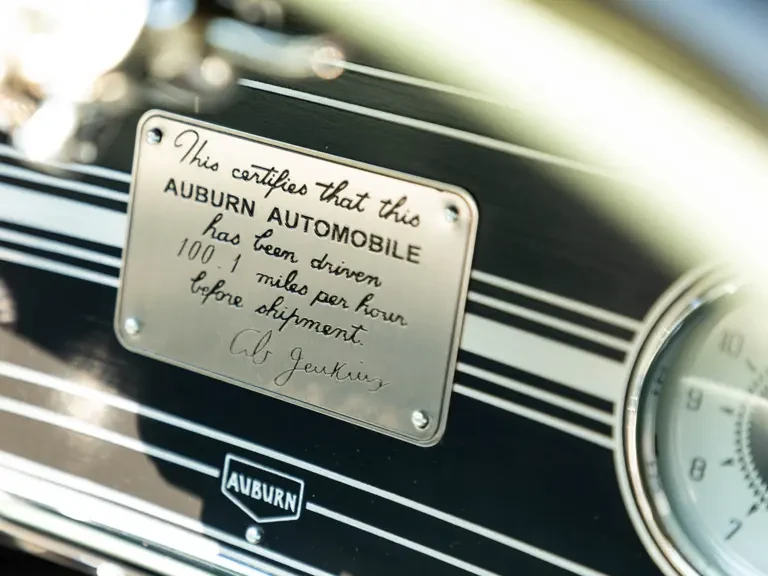 This certifies that this
AUBURN AUTOMOBILE
has been driven
100.1 miles per hour
before shipment.
Ab Jenkins
AUBURN
10
9
8
7